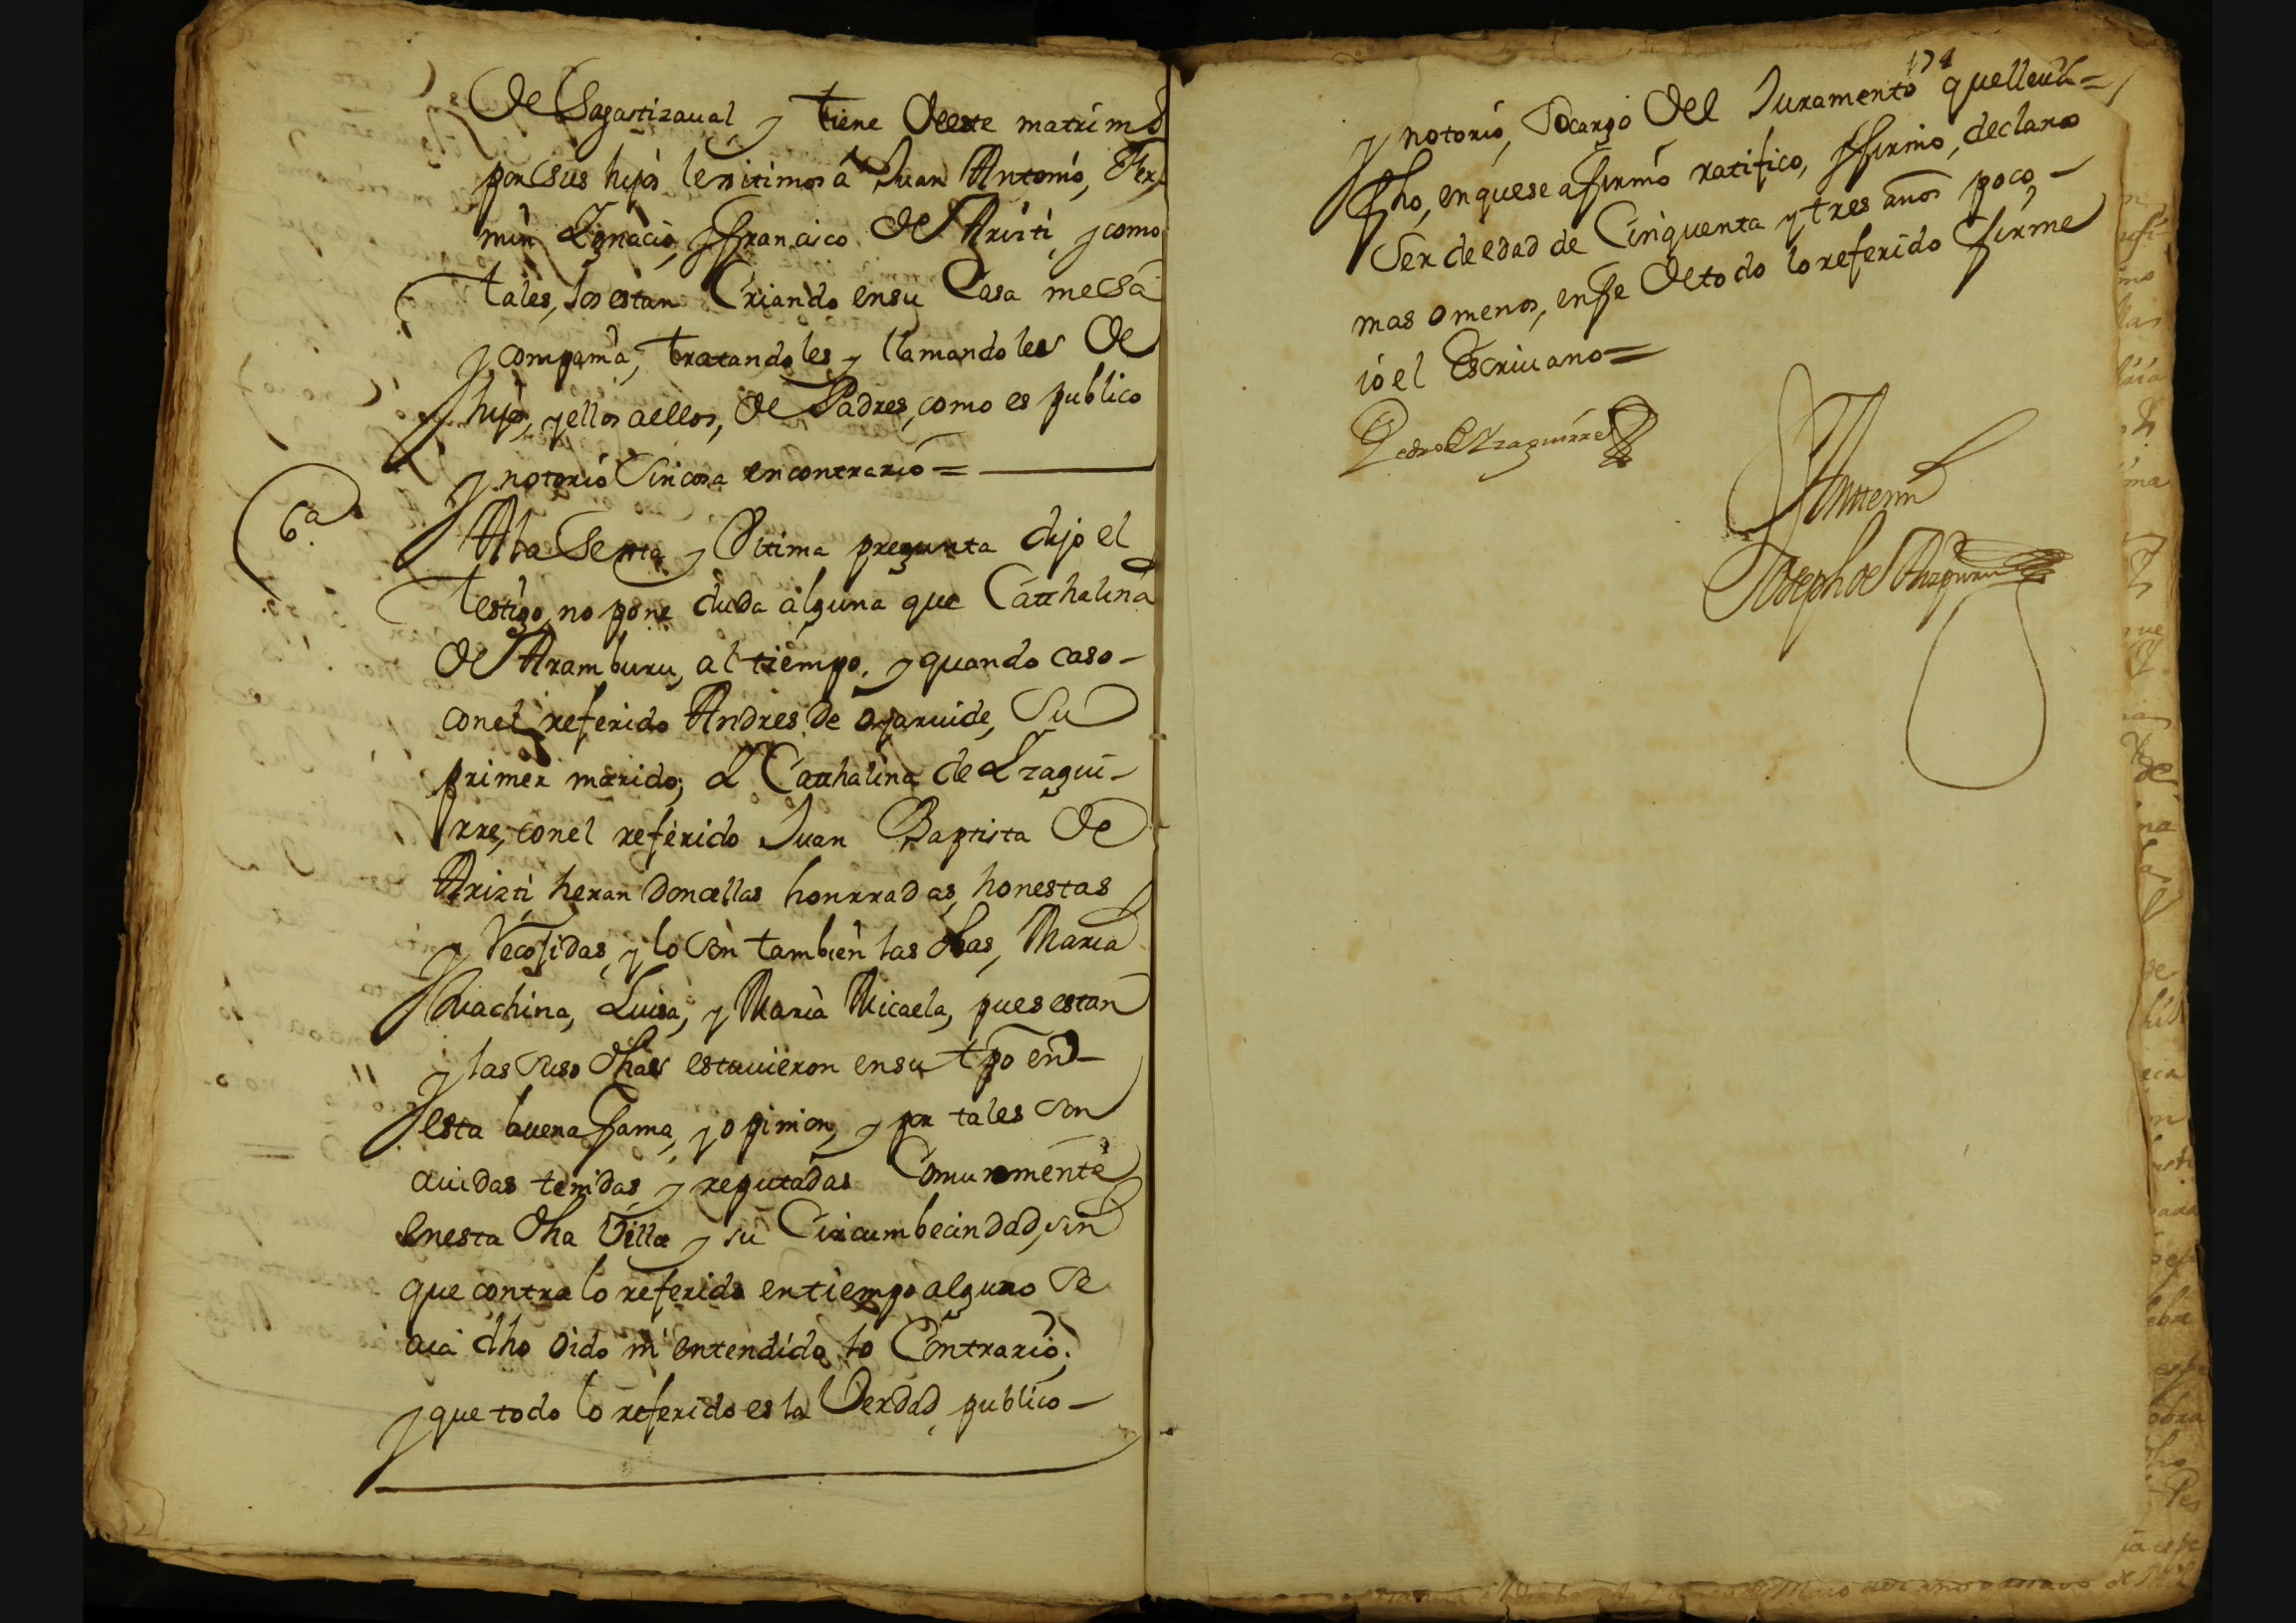 de Sagastizaual, y tiene de este matrimº
por sus hijos lexitimos â Juan Antonio, Fer
min Ygnacio, y francisco de Aristi, y como
tales, los estan Criando en su Casa messa
y compania, tratandoles y llamandoles de
hijos, y ellos a ellos, de Padres, como es publico
y notorio Sin cosa en contrario =
6.ª
A la Sexta y Vltima pregunta dijo el
testigo, no pone duda alguna que Cathalina
de Aramburu, al tiempo, y quando caso -
con el referido Andres de oyaruide, Su
primer marido; Y Cathalina de Yzagui -
rre, con el referido Juan Baptista de
Aristi heran doncellas honrradas, honestas
y Recojidas, y lo Son tambien las dhas, Maria
Juachina, Luisa, y Maria Micaela, pues estan
y las suso dhas estuuieron en su tpo en
esta buena fama, y opinion, y por tales son
auidas tenidas, y reputadas Comunmente
en esta dha Villa y su Circumbecindad, sin
que contra lo referido en tiempo alguno Se
aia dho oido ni entendido lo Contrario;
y que todo lo referido es la Verdad, publico -
174
y notorio, So cargo del Juramento que lleua =
fho, en que se afirmó ratifico, y firmo, declaro
Ser de edad de Cinquenta y tres años poco, -
mas o menos, en fe de todo lo referido firme
io el Escriuano =
Pedro de Yzaguirre
Antemi
Joseph de